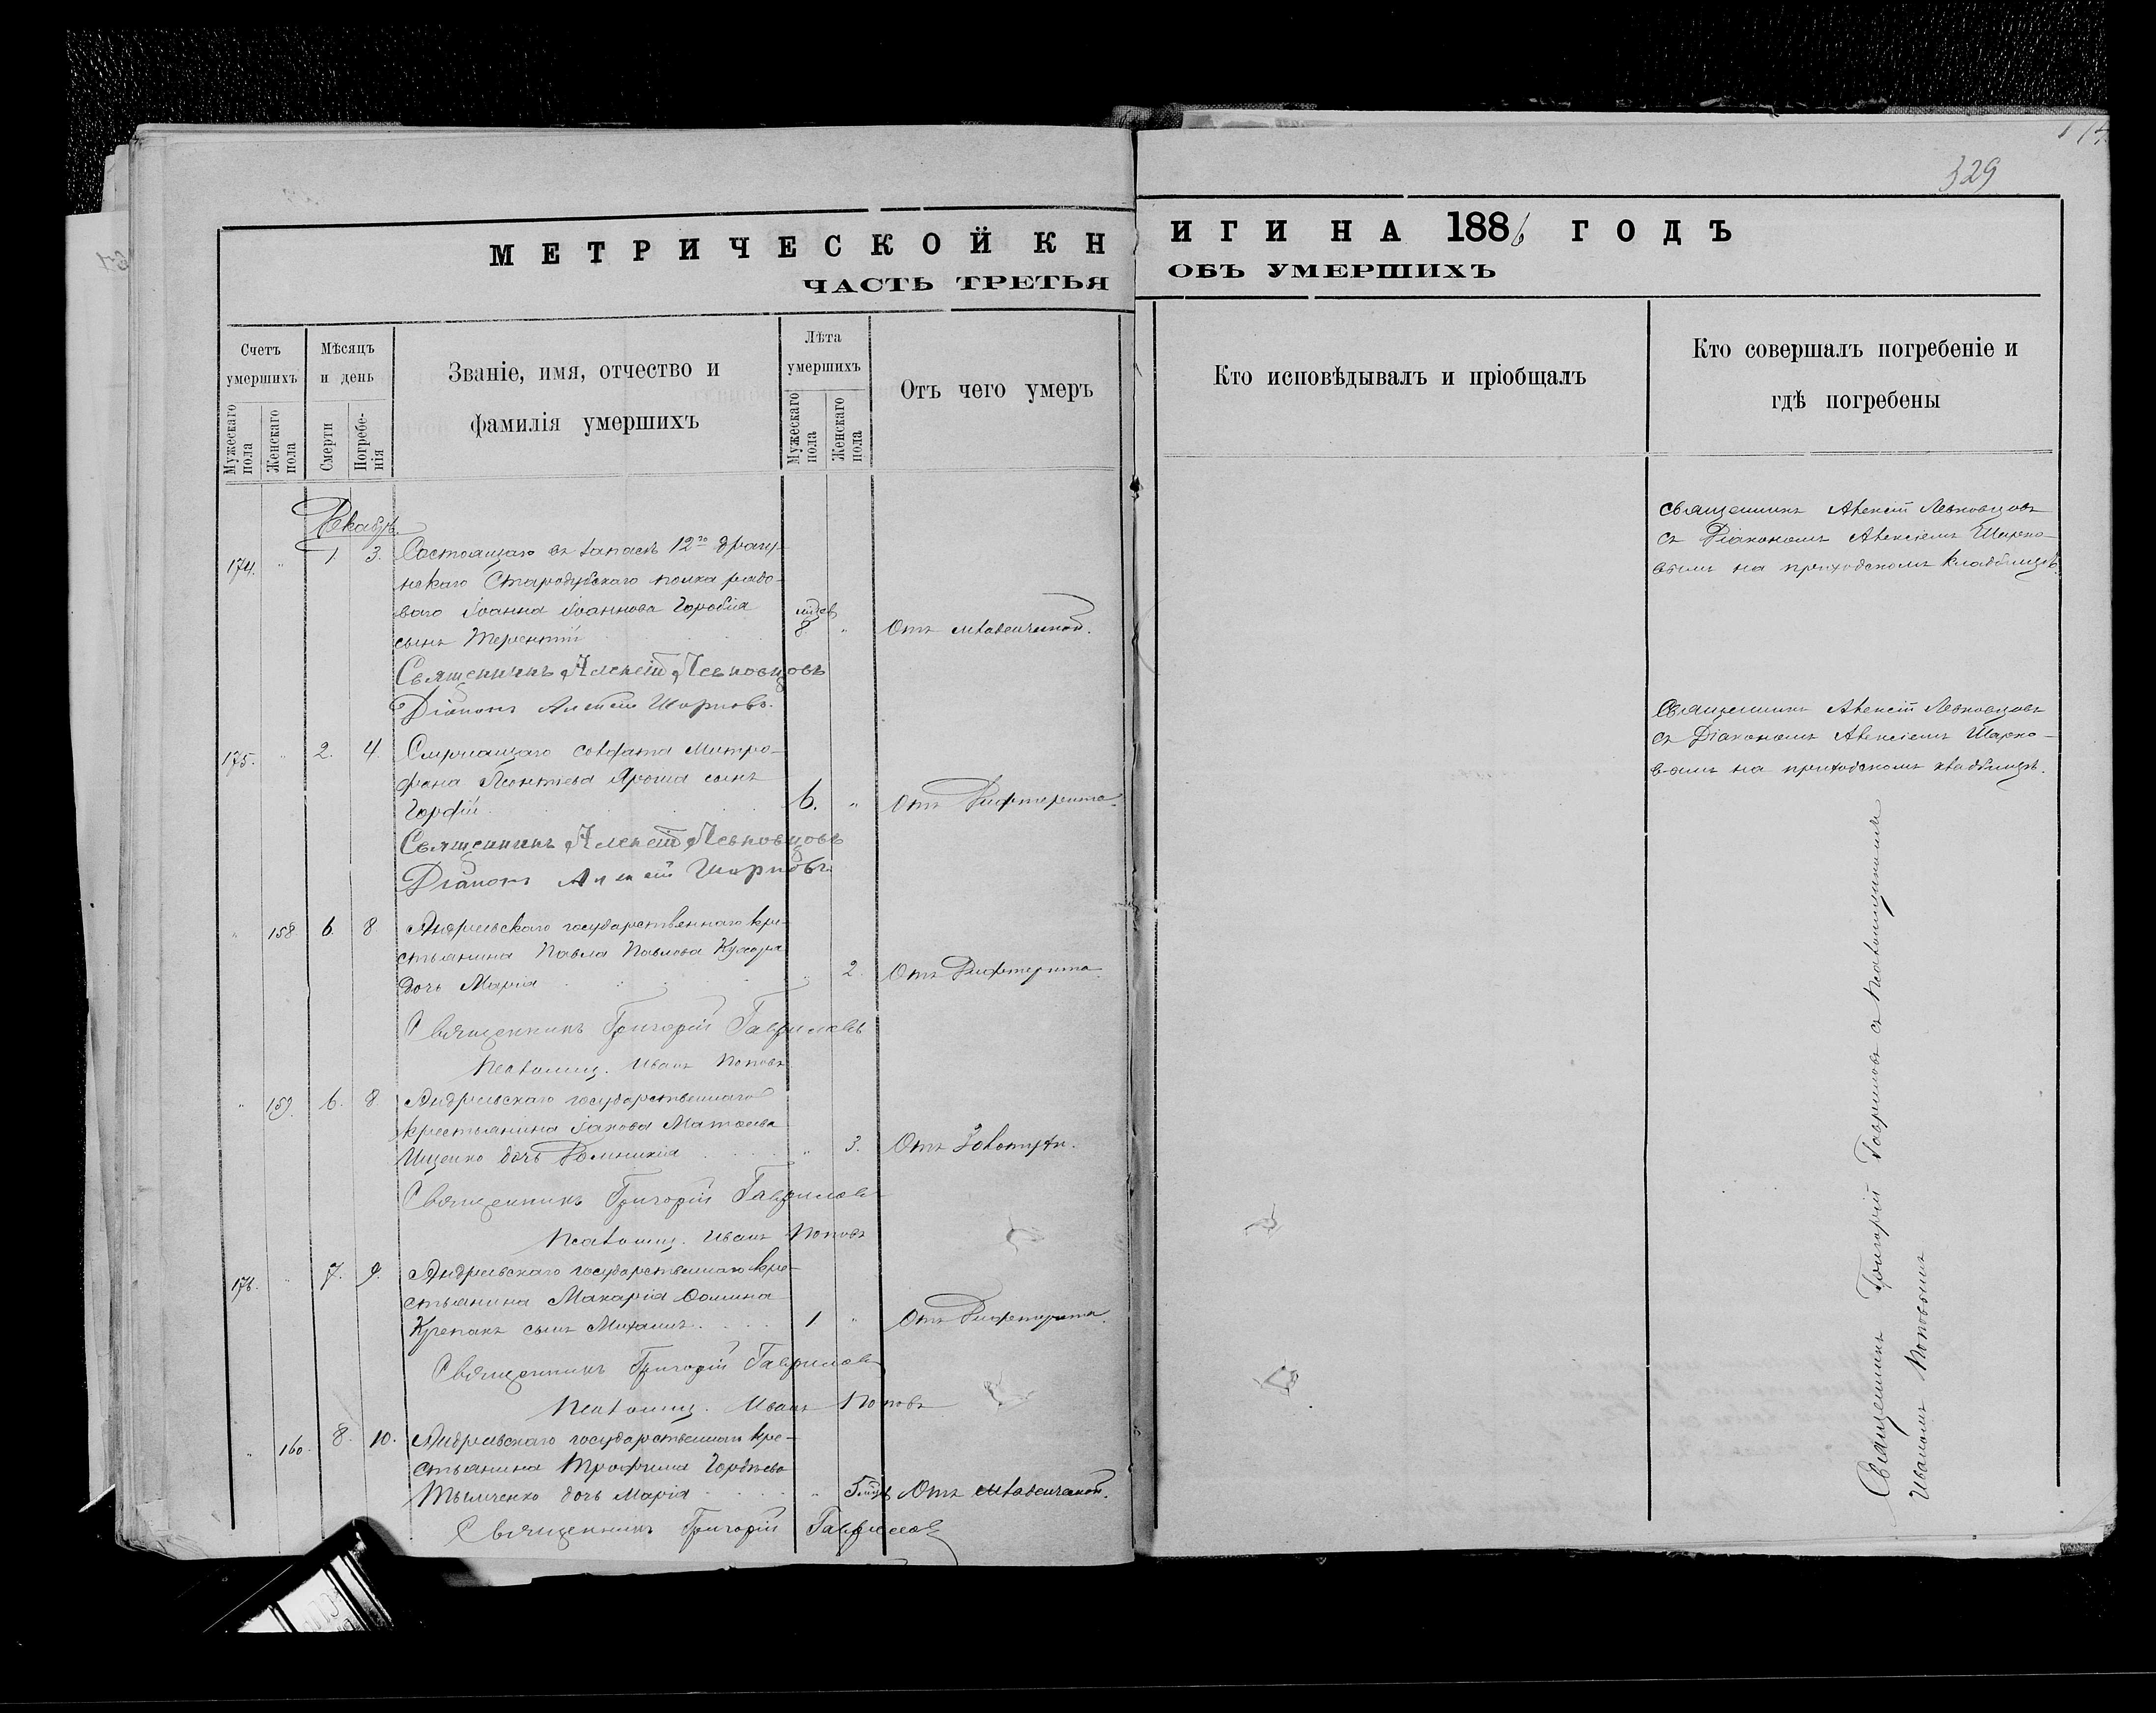 329
МЕТРИЧЕСКОЙ КНИГИ НА 1886 ГОДЪ
ЧАСТЬ ТРЕТЬЯ ОБЪ УМЕРШИХЪ
Счетъ умершихъ
Мужескаго пола
Женскаго пола
Мѣсяцъ и день
Смерти
Погребенія
Званіе, имя, отчество и
фамилія умершихъ
Лѣта умершихъ
Мужескаго пола
Женскаго пола
Отъ чего умеръ
Кто исповѣдывалъ и пріобщалъ
Кто совершалъ погребеніе и
гдѣ погребены
Декабрь
174. " 1 3. Состоящаго въ запасѣ 12го драгу-
нскаго Стародубскаго полка рядо-
ваго Іоанна Іоаннова Горобія мцев
сынъ Терентій 8 " Отъ младенческой.
Священникъ Алексій Левковцовъ
Діаконъ Алексій Шарковъ.
Священникъ Алексій Левковцовъ
съ Діакономъ Алексіемъ Шарко-
вымъ на приходскомъ кладбищѣ.
175. " 2. 4. Служащаго солдата Митро-
фана Леонтева Яроша сынъ
Гордій 6. " Отъ Дифтерита.
Священникъ Алексій Левковцовъ
Діаконъ Алексій Шарковъ
Священникъ Алексій Левковцовъ
съ Діакономъ Алексіемъ Шарко-
вымъ на приходскомъ кладбищѣ.
" 158 6. 8 Андреевскаго государственнаго кре-
стьянина Павла Павлова Кухаря
дочь Марія " 2. Отъ Дифтерита.
Священникъ Григорій Гавриловъ
Псаломщ. Иванъ Поповъ
" 159. 6. 8. Андреевскаго государственнаго
крестьянина Іакова Матвеева
Ищенко дочь Домникія " 3. Отъ Золотухи.
Священникъ Григорій Гавриловъ
Псаломщ. Иванъ Поповъ
176. " 7. 9. Андреевскаго государственнаго кре-
стьянина Макарія Фомина
Крепакъ сынъ Михаилъ 1 " Отъ Дифтерита.
Священникъ Григорій Гавриловъ
Псаломщ. Иванъ Поповъ
" 160. 8. 10. Андреевскаго государственнаго кре-
стьянина Трофима Гордѣева
Тымченко дочь Марія " 5 мцв Отъ младенческой.
Священникъ Григорій Гавриловъ
Священникъ Григорій Гавриловъ съ Псаломщикомъ
Иваномъ Поповымъ